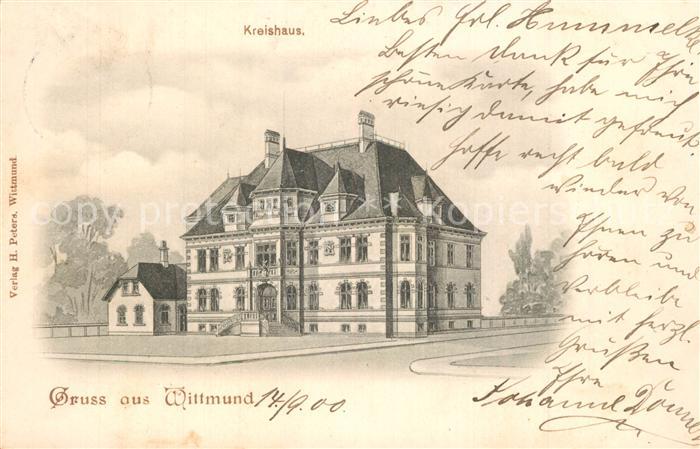 Kreishaus.
Liebes Frl. Hummelke
Besten Dank für Ihre
schöne Karte, habe mich
riesig damit gefreut.
Hoffe recht bald
wieder von
Ihnen zu
hören und
verbleibe
mit herzl.
Grüßen
Ihre
Johanne
Verlag H. Peters, Wittmund.
Gruss aus Wittmund 14/9.00.
copyright